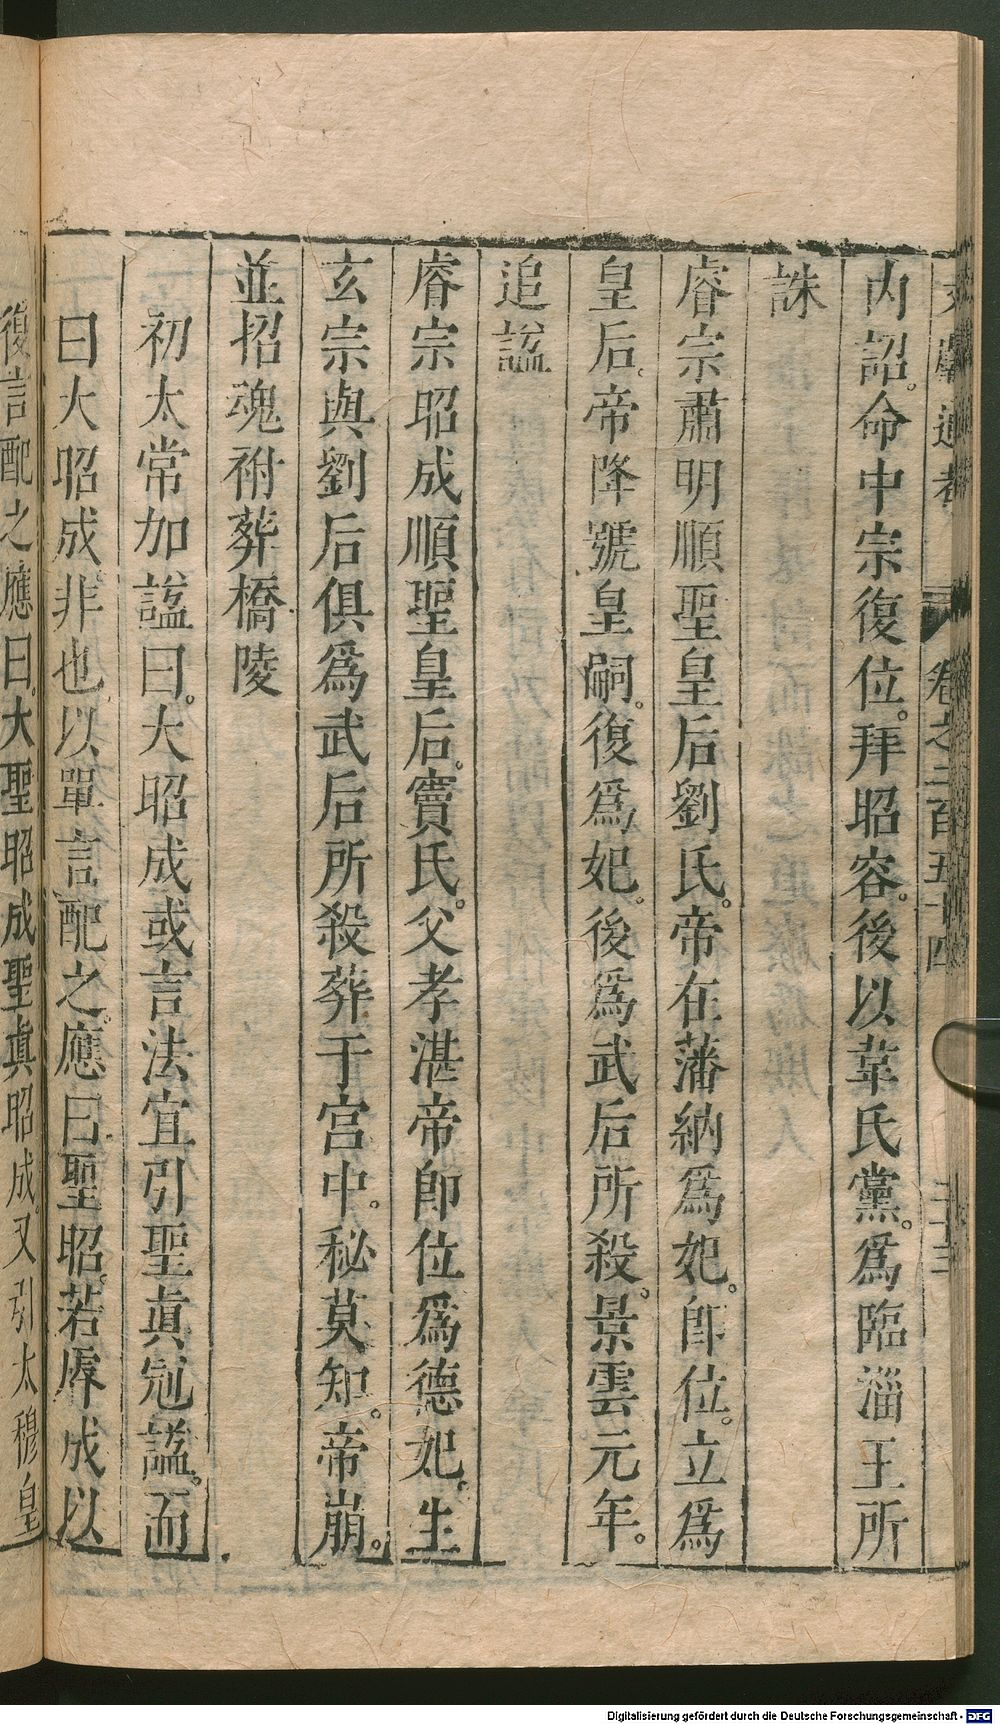 文獻通考 卷之二百五十四 二十三
內詔。命中宗復位。拜昭容。後以韋氏黨。爲臨淄王所
誅
睿宗肅明順聖皇后劉氏。帝在藩納爲妃。卽位。立爲
皇后。帝降號皇嗣。復爲妃。後爲武后所殺。景雲元年。
追諡
睿宗昭成順聖皇后。竇氏。父孝湛帝卽位爲德妃。生
玄宗與劉后俱爲武后所殺葬于宮中。秘莫知。帝崩。
並招魂祔葬橋陵
初太常加諡曰。大昭成或言法宜引聖眞冠諡。而
曰大昭成非也。以單言配之。應曰聖昭。若㕅成以
復言配之應曰。大聖昭成聖眞昭成。又引太穆皇
Digitalisierung gefördert durch die Deutsche Forschungsgemeinschaft - DFG